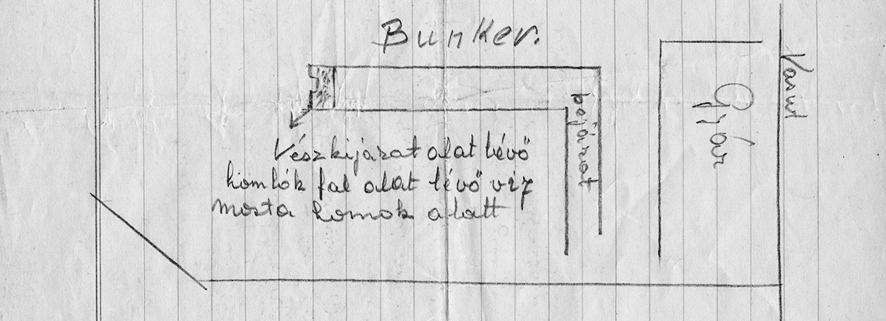 Bunker.
Vasut
Gyár
pejárat
Vészkijárat alat lévő
homlók fal alat lévő víz
mosta homok alatt